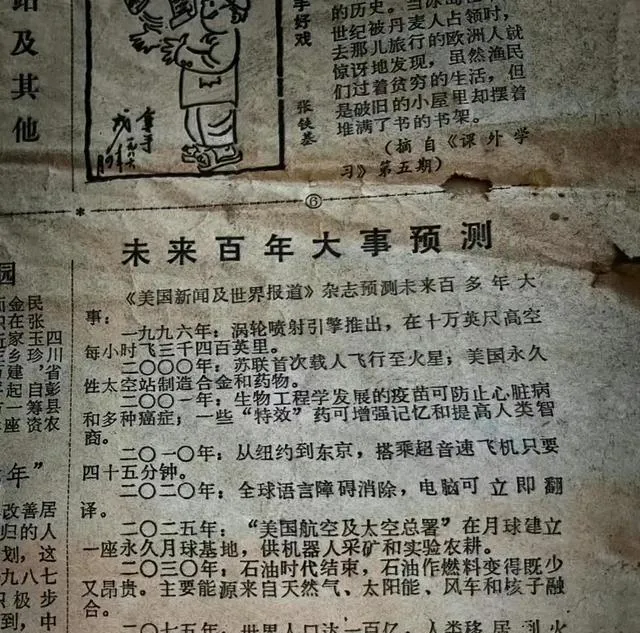 的历史。当冰岛在
世纪被丹麦人占领时,
去那儿旅行的欧洲人就
惊讶地发现,虽然渔民
们过着贫穷的生活,但
是破旧的小屋里却摆着
堆满了书的书架。
(摘自《课外学
习》第五期)
好戏
张铁基
及其他
⑥
未来百年大事预测
《美国新闻及世界报道》杂志预测未来百多年大
事:
一九九六年:涡轮喷射引擎推出,在十万英尺高空
每小时飞三千四百英里。
二〇〇〇年:苏联首次载人飞行至火星;美国永久
性太空站制造合金和药物。
二〇〇一年:生物工程学发展的疫苗可防止心脏病
和多种癌症;一些“特效”药可增强记忆和提高人类智
商。
二〇一〇年:从纽约到东京,搭乘超音速飞机只要
四十五分钟。
二〇二〇年:全球语言障碍消除,电脑可立即翻
译。
二〇二五年:“美国航空及太空总署”在月球建立
一座永久月球基地,供机器人采矿和实验农耕。
二〇三〇年:石油时代结束,石油作燃料变得既少
又昂贵。主要能源来自天然气、太阳能、风车和核子融
合。
二〇七五年:世界人口达一百亿,人类移居到火
园
四川省彭县农
民张玉珍,自筹资
年”
改善居
归的人
划,这
九八七
积极步
到,中